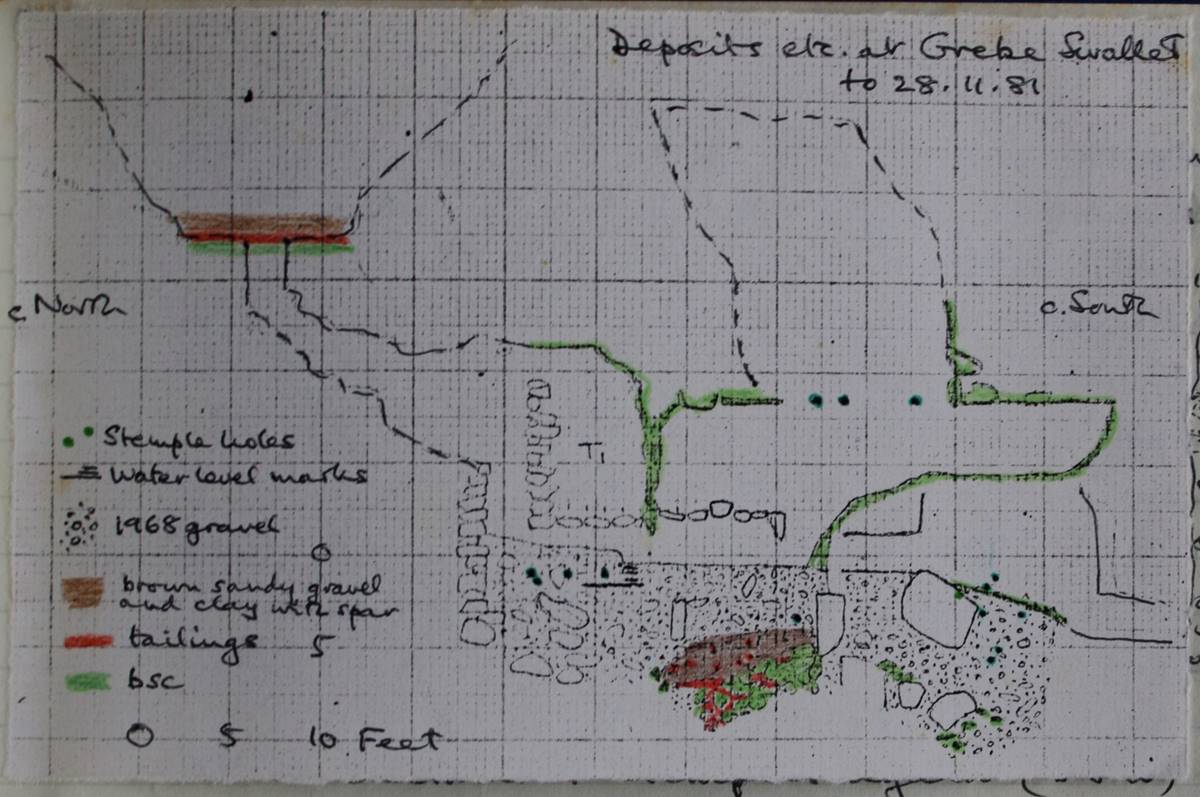 Deposits etc. at Grebe Swallet
to 28.11.81
c North
c. South
T1
Stemple holes
Water level marks
1968 gravel
0
brown sandy gravel
and clay with spar
tailings 5
bsc
0 5 10 Feet